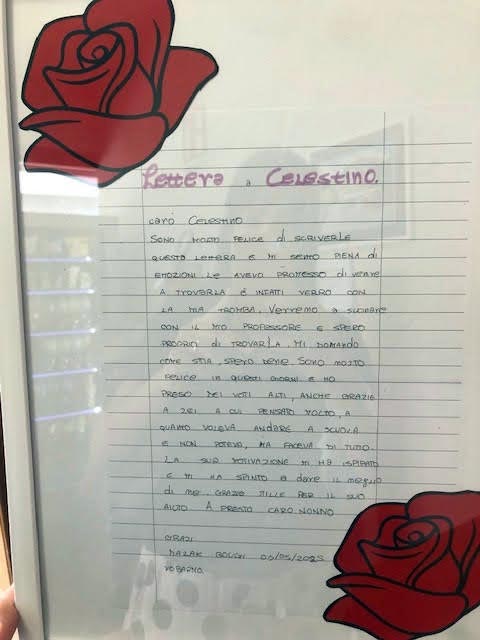 Lettera a Celestino.
Caro Celestino
Sono molto felice di scriverle
questa lettera e mi sento piena di
emozioni. Le avevo promesso di venire
a trovarla e infatti verrò con
la mia tromba. Verremo a suonare
con il mio professore e spero
proprio di trovarla. Mi domando
come stia, spero bene. Sono molto
felice in questi giorni e ho
preso dei voti alti, anche grazie
a lei a cui pensato molto, a
quanto voleva andare a scuola
e non poteva, ma faceva di tutto.
La sua motivazione mi ha ispirato
e mi ha spinto a dare il meglio
di me. Grazie mille per il suo
aiuto. A presto caro nonno
Grazi
Vobarno.